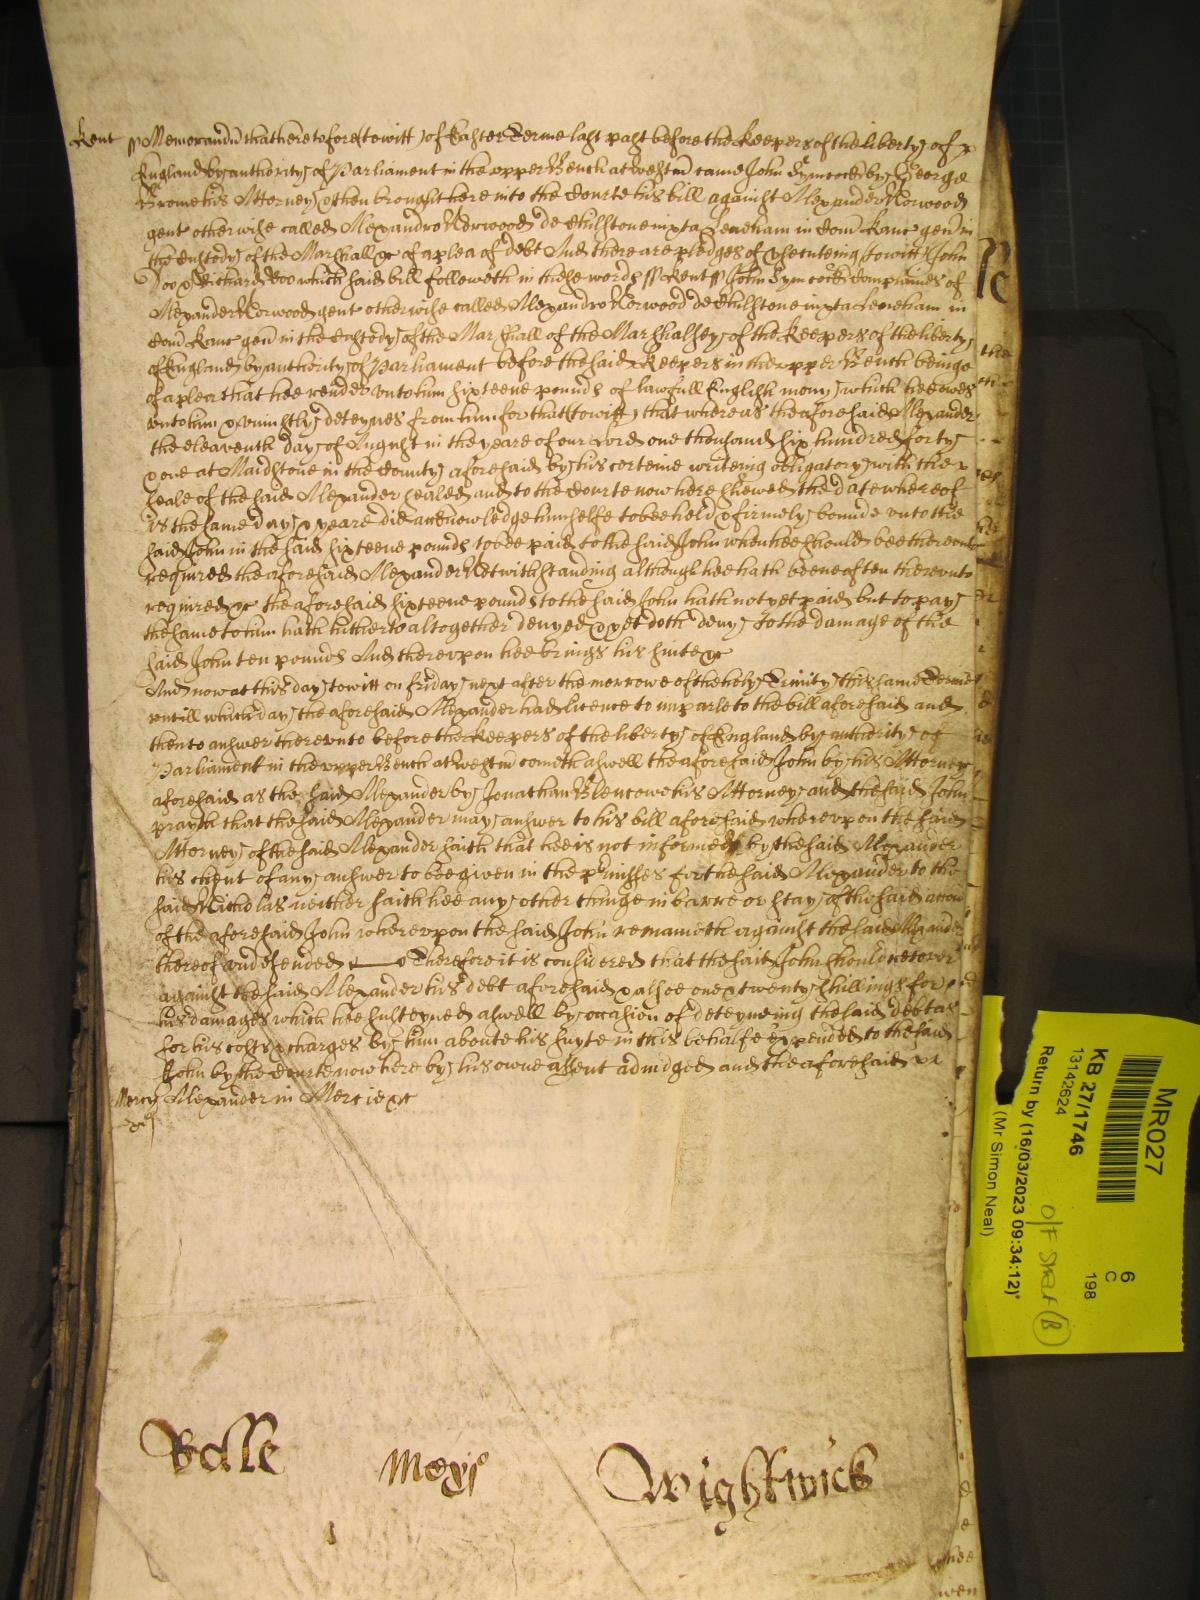 Kent ss Memorand that heretofore (to witt) of Easter Terme last past before the Keepers of the liberty of
England by authority of Parliament in the upper Bench at Westm came John Symcock by George
Brome his Attorney & then brought here into the Courte his bill against Alexander Norwood
gent otherwise called Alexandro Norwood de Hulstone iuxta Leneham in Com Kanc gen in
the Custody of the Marshall &c of a plea of debt And there are pledges of prosecuting (to witt) John
Doo & Richard Roo which said bill followeth in these words ss Kent ss John Symcock complaines of
Alexander Norwood gent otherwise called Alexandro Norwood de Hulstone iuxta Leneham in
Com Kanc gen in the Custody of the Marshall of the Marshalsey of the Keepers of the liberty
of England by authority of Parliament before the said Keepers in the upper Bench beinge
of a plea that hee render unto him sixteene pounds of lawfull English mony which hee owes
unto him & uniustly deteynes from him for that (to witt) that whereas the aforesaid Alexander
the eleaventh day of August in the yeare of our Lord one thousand six hundred forty
& one at Maidstone in the County aforesaid by his certeine writeing obligatory with the
seale of the said Alexander sealed and to the Courte now here shewed the date whereof
is the same day & yeare did acknowledge himselfe to bee held & firmely bounde unto the
said John in the said sixteene pounds to bee paid to the said John when hee should bee thereunto
required the aforesaid Alexander Notwithstanding although hee hath beene often thereunto
required &c the aforesaid sixteene pounds to the said John hath not yet paid but to pay
the same to him hath hitherto altogether denyed & yet doth deny To the damage of the
said John ten pounds And thereupon hee brings his suite &c
And now at this day to witt on friday next after the morrowe of the holy Trinity this same Terme
untill which day the aforesaid Alexander had licence to imparle to the bill aforesaid and
then to answer thereunto before the Keepers of the liberty of England by authority of
Parliament in the upper Bench at Westm cometh aswell the aforesaid John by his Attorney
aforesaid as the said Alexander by Jonathan Blencowe his Attorney and the said John
prayth that the said Alexander may answer to his bill aforesaid whereupon the said
Attorney of the said Alexander saith that hee is not informed by the said Alexander
his client of any answer to bee given in the premisses for the said Alexander to the
said Nicholas neither saith hee any other thinge in barre or stay of the said accon
of the aforesaid John whereupon the said John remaineth against the said Alexander
thereof undefended &c Therefore it is considered that the said John should recover
against the said Alexander his debt aforesaid & alsoe one & twenty shillings for
his damages which hee susteyned aswell by occasion of deteyneing the said debt as
for his costs & charges by him aboute his suyte in this behalfe expended to the said
John by the Courte now here by his owne assent adiudged and the aforesaid
Mercy Alexander in Mercie &c
Rolle Wightwick
MR027
KB 27/1746
13142624
Return by (16/03/2023 09:34:12)
(Mr Simon Neal)
6
C
198
O/F SHELF (B)